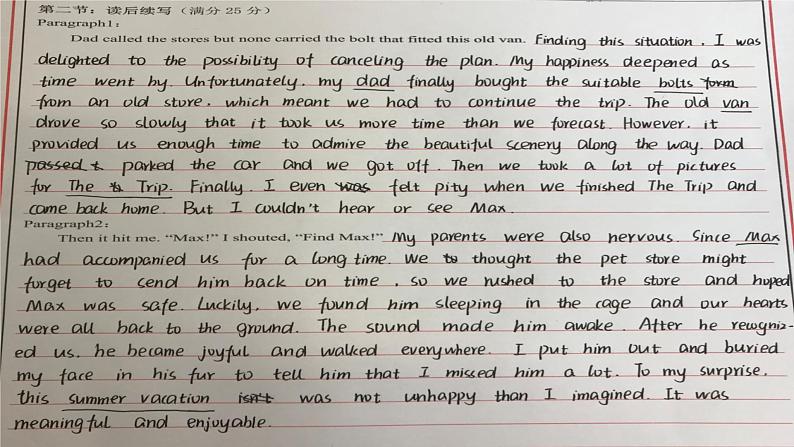 第二节：读后续写（满分 25 分）
Paragraph1：
Dad called the stores but none carried the bolt that fitted this old van. Finding this situation, I was
delighted to the possibility of canceling the plan. My happiness deepened as
time went by. Unfortunately, my dad finally bought the suitable bolts form
from an old store, which meant we had to continue the trip. The old van
drove so slowly that it took us more time than we forecast. However, it
provided us enough time to admire the beautiful scenery along the way. Dad
passed t parked the car and we got off. Then we took a lot of pictures
for The Trip. Finally, I even was felt pity when we finished The Trip and
came back home. But I couldn't hear or see Max.
Paragraph2：
Then it hit me. “Max!” I shouted, “Find Max!” My parents were also nervous. Since Max
had accompanied us for a long time. We thought the pet store might
forget to send him back on time, so we rushed to the store and hoped
Max was safe. Luckily, we found him sleeping in the cage and our hearts
were all back to the ground. The sound made him awake. After he recogniz-
ed us, he became joyful and walked everywhere. I put him out and buried
my face in his fur to tell him that I missed him a lot. To my surprise,
this summer vacation isn't was not unhappy than I imagined. It was
meaningful and enjoyable.